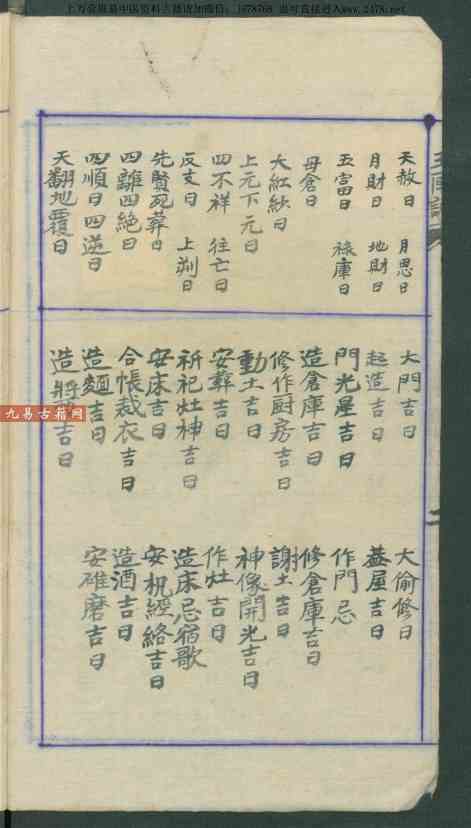 天赦日 月恩日
月財日 地財日
五富日 祿庫日
母倉日
大紅紗日
上元下元日
四不祥 往亡日
反支日 上朔日
先賢死葬日
四離四絕日
四順日 四逆日
天翻地覆日
大門吉日
起造吉日
門光星吉日
造倉庫吉日
修作厨房吉日
動土吉日
安葬吉日
祈祀灶神吉日
安床吉日
合帳裁衣吉日
造麵吉日
造醬吉日
大偷修日
蓋屋吉日
作門忌
修倉庫吉日
謝土吉日
神像開光吉日
作灶吉日
造床忌宿歌
安机經絡吉日
造酒吉日
安碓磨吉日
九易古籍网